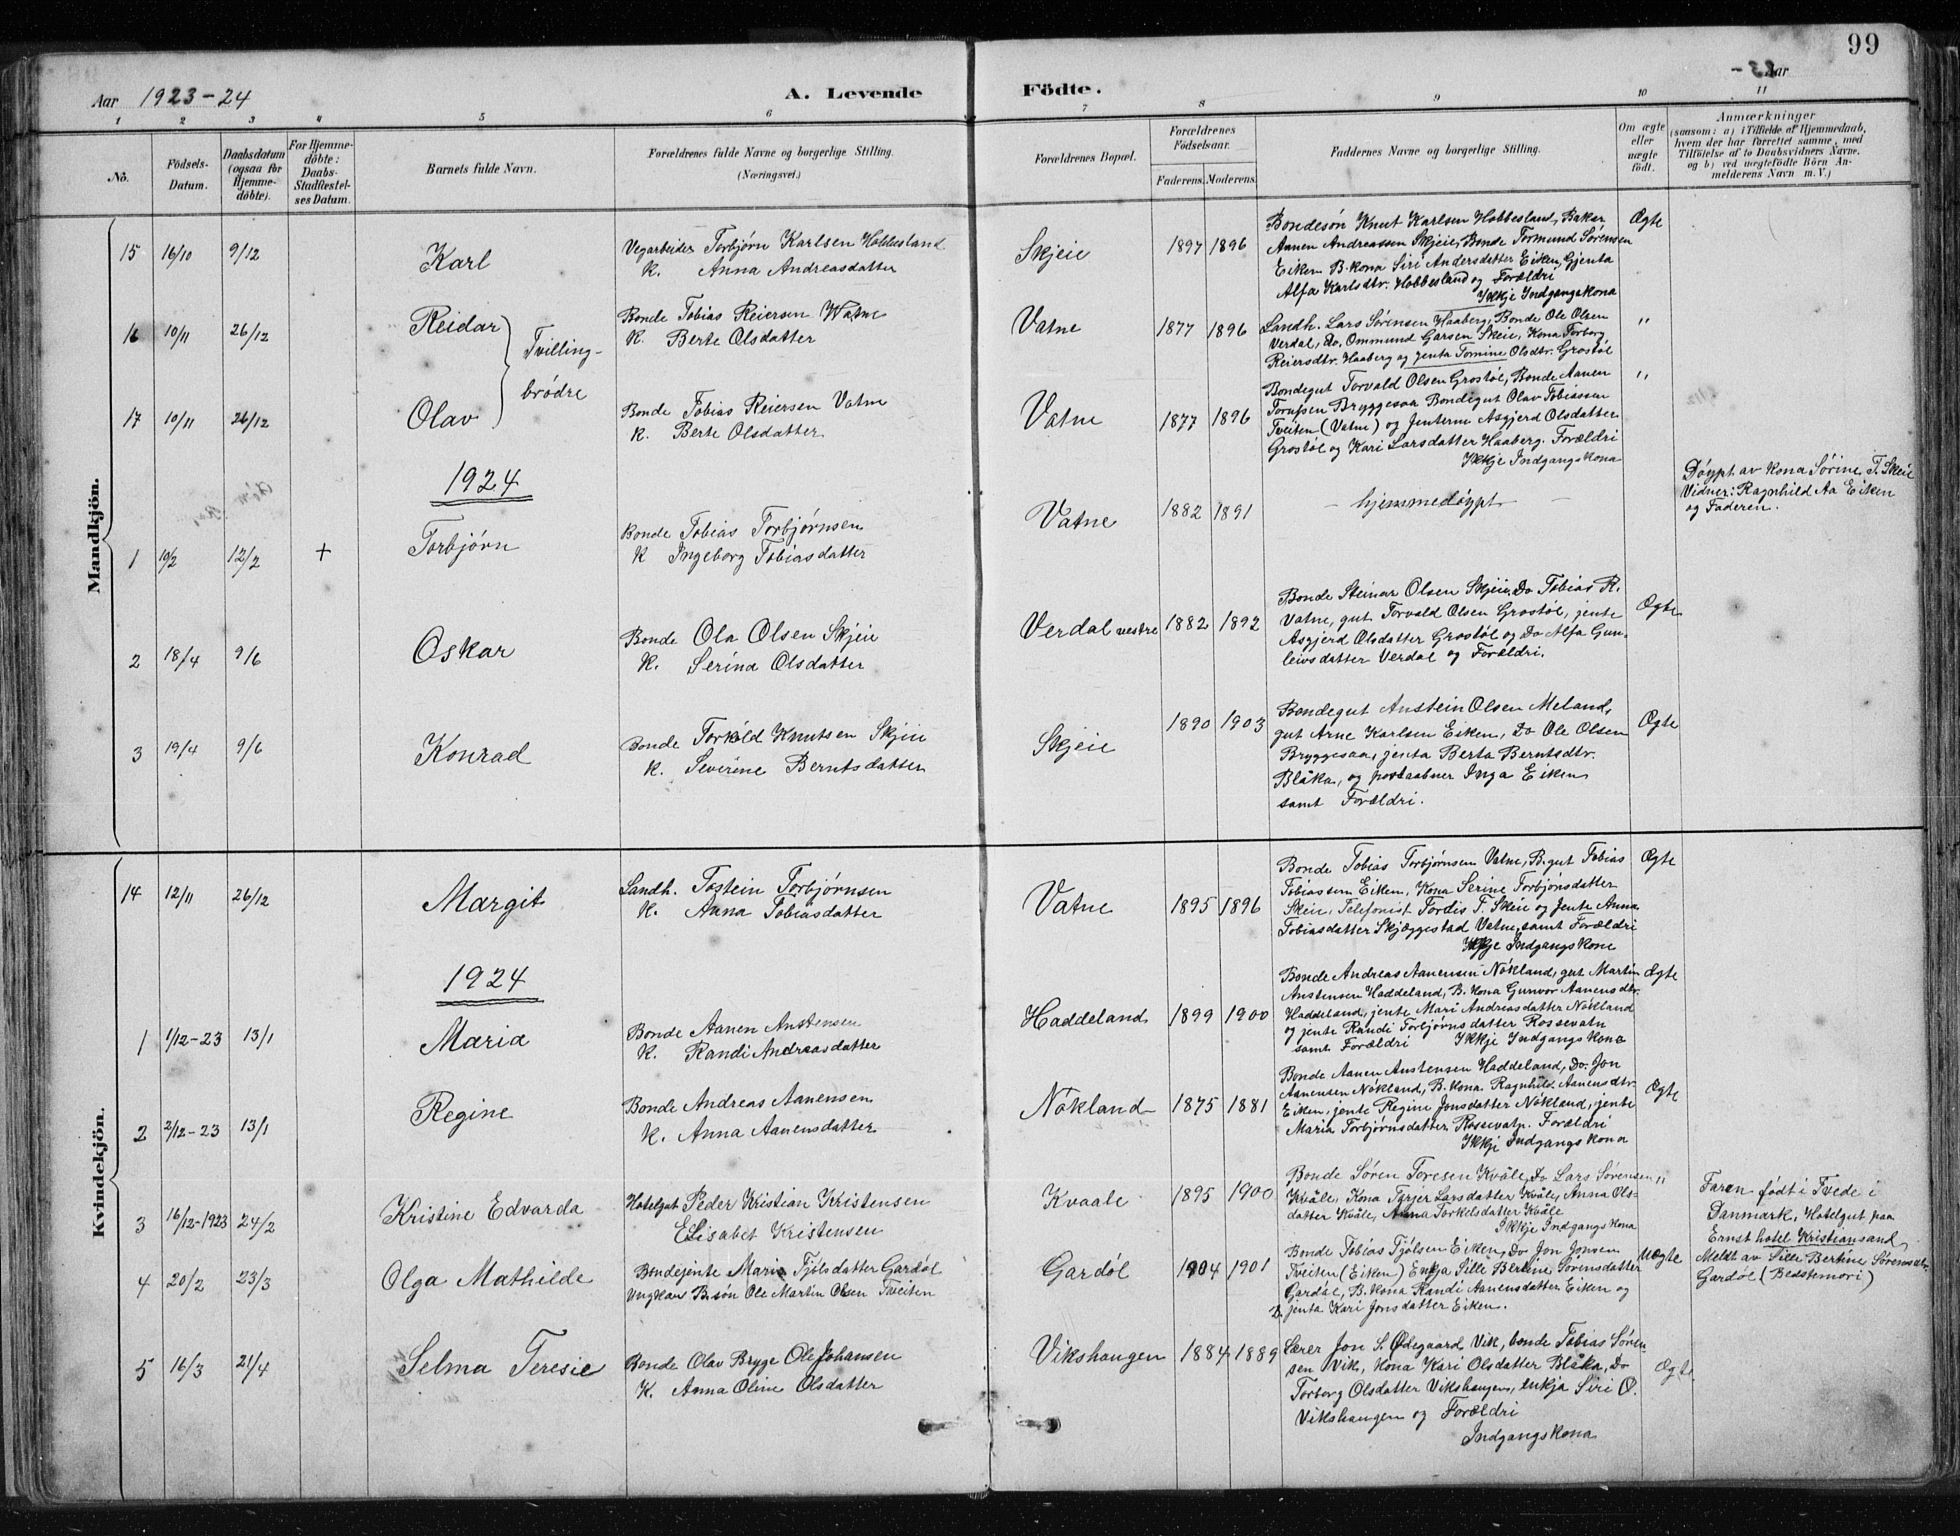 99
Aar 1923-24
A. Levende
Födte.
Aar
1 2 3 4 5 6 7 8 9 10 11
No.
Födsels-
Datum.
Daabsdatum
(ogsaa for
Hjemme-
döbte).
For Hjemme-
döbte:
Daabs-
Stadfæstel-
ses Datum.
Barnets fulde Navn.
Forældrenes fulde Navne og borgerlige Stilling.
(Næringsvei.)
Forældrenes Bopæl.
Forældrenes
Födselsaar.
Faderens. Moderens.
Faddernes Navne og borgerlige Stilling.
Om ægte
eller
uægte
födt.
Anmærkninger
(saasom: a) i Tilfælde af Hjemmedaab,
hvem der har forrettet samme, med
Tilföielse af to Daabsvidners Navne,
og b) ved uægtefödte Börn An-
melderens Navn m. V.)
Mandkjön.
15 16/10 9/12 Karl
Vegarbeider Torbjørn Karlsen Hobbesland
K. Anna Andreasdatter
Skjeie 1897 1896
Bondesøn Knut Karlsen Hobbesland, Bakar
Aanen Andreassen Skjeie, Bonde Tormund Sørensen
Eiken B. kona Siri Andersdatter Eiken, Gjenta
Alfa Karlsdtr. Hobbesland og Forældri
Ikkje Indgangskona
Ægte
16 10/11 26/12 Reidar
Tvilling-
brødre
Bonde Tobias Reiersen Watne
K. Berte Olsdatter
Vatne 1877 1896
Landh. Lars Sørensen Haaberg, Bonde Ole Olsen
Verdal, Do. Ommund Garsen Skeie, Kona Torborg
Reiersdtr. Haaberg og jenta Tomine Olsdtr. Grostøl
"
17 10/11 26/12 Olav
Bonde Tobias Reiersen Vatne
K. Berte Olsdatter
Vatne 1877 1896
Bondegut Torvald Olsen Grostøl, Bonde Aanen
Bryggesaa Bondegut Olav Tobiassen
Tveiten (Vatne) og Jenterne Asgjerd Olsdatter
Grostøl og Kari Larsdatter Haaberg. Forældri
Ikkje Indgangskona
"
1924
1 19/2 12/2 + Torbjørn
Bonde Tobias Torbjørnsen
K Ingeborg Tobiasdatter
Vatne 1882 1891
- hjemmedøypt -
Døypt av kona Sørine T. Skeie
Vidner: Ragnhild Aa Eiken
og Faderen.
2 18/4 9/6 Oskar
Bonde Ola Olsen Skjeie
K. Serina Olsdatter
Verdal vestre 1882 1892
Bonde Steinar Olsen Skjeie, Do Tobias R.
Vatne, gut Torvald Olsen Grostøl, jente
Asgjerd Olsdatter Grostøl og Do Alfa Gun-
leivsdatter Verdal og Forældri.
Ægte
3 19/4 9/6 Konrad
Bonde Torkild Knutsen Skjeie
K. Severine Berntsdatter
Skjeie 1890 1903
Bondegut Anstein Olsen Meland,
gut Arne Karlsen Eiken, Do Ole Olsen
Bryggesaa, jenta Berta Berntsdtr.
Blåka, og postaabner Inga Eiken
samt Forældri.
Ægte
Kvindekjön.
14 12/11 26/12 Margit
Landh. Tostein Torbjørnsen
K. Anna Tobiasdatter
Vatne 1895 1896
Bonde Tobias Torbjørnsen Vatne, B. gut Tobias
Tobiassen Eiken, Kona Serine Torbjørnsdatter
Skeie, Telefonist Tordis T. Skeie og Jente Anna
Tobiasdatter Skjæggestad Vatne, samt Forældri
Ikkje Indgangskone
Ægte
1924
1 1/12-23 13/1 Maria
Bonde Aanen Anstensen
K. Randi Andreasdatter
Haddeland 1899 1900
Bonde Andreas Aanensen Nökland, gut Martin
Anstensen Haddeland, B. kona Gunvor Aanensdtr.
Haddeland, jente Mari Andreasdatter Nökland
og jente Randi Torbjørnsdatter Rossevatn
samt Forældri Ikkje Indgangskona
Ægte
2 2/12-23 13/1 Regine
Bonde Andreas Aanensen
K. Anna Aanensdatter
Nökland 1875 1881
Bonde Aanen Anstensen Haddeland, Do. Jon
Aanensen Nökland, B. kona Ragnhild Aanensdtr.
Eiken, jente Regine Jonsdatter Nökland, jente
Maria Torbjørnsdatter Rossevatn. Forældri
Ikkje Indgangskona
Ægte
3 16/12-1923 24/2 Kristine Edvarda
Hotelgut Peder Kristian Kristensen
Elisabet Kristensen
Kvaale 1895 1900
Bonde Søren Toresen Kvåle, Do Lars Sørensen
Kvåle, Kona Larsdatter Kvåle, Anna Ols-
datter Kvåle, Anna Torkelsdatter Kvåle
Ikkje Indgangskona
"
Faren født i Tvede i
Danmark, Hotelgut paa
Ernst hotel Kristiansand
4 20/2 23/3 Olga Mathilde
Bondejente Maria Tjølsdatter Gardöl
Ungkar B. søn Ole Martin Olsen Tveiten
Gardöl 1904 1901
Bonde Tobias Tjölsen Eiken, Do Jon Jonsen
Tveiten (Eiken) Enkja Sille Bertine Sørensdatter
Gardöl, B. kona Randi Aanensdatter Eiken og
jenta Kari Jonsdatter Eiken.
Uægte
Meldt av Sille Bertine Sørensdtr.
Gardöl (Bedstemori)
5 16/3 21/4 Selma Teresie
Bonde Olav Brygge Ole Johansen
K. Anna Oline Olsdatter
Vikshaugen 1884 1889
Lærer Jon S. Ødegaard Vik, bonde Tobias Søren-
sen Vik, Kona Kari Olsdatter Blåka, Do
Torborg Olsdatter Vikshaugen, enkja Siri O.
Vikshaugen og Forældri
Indgangskona
Ægte